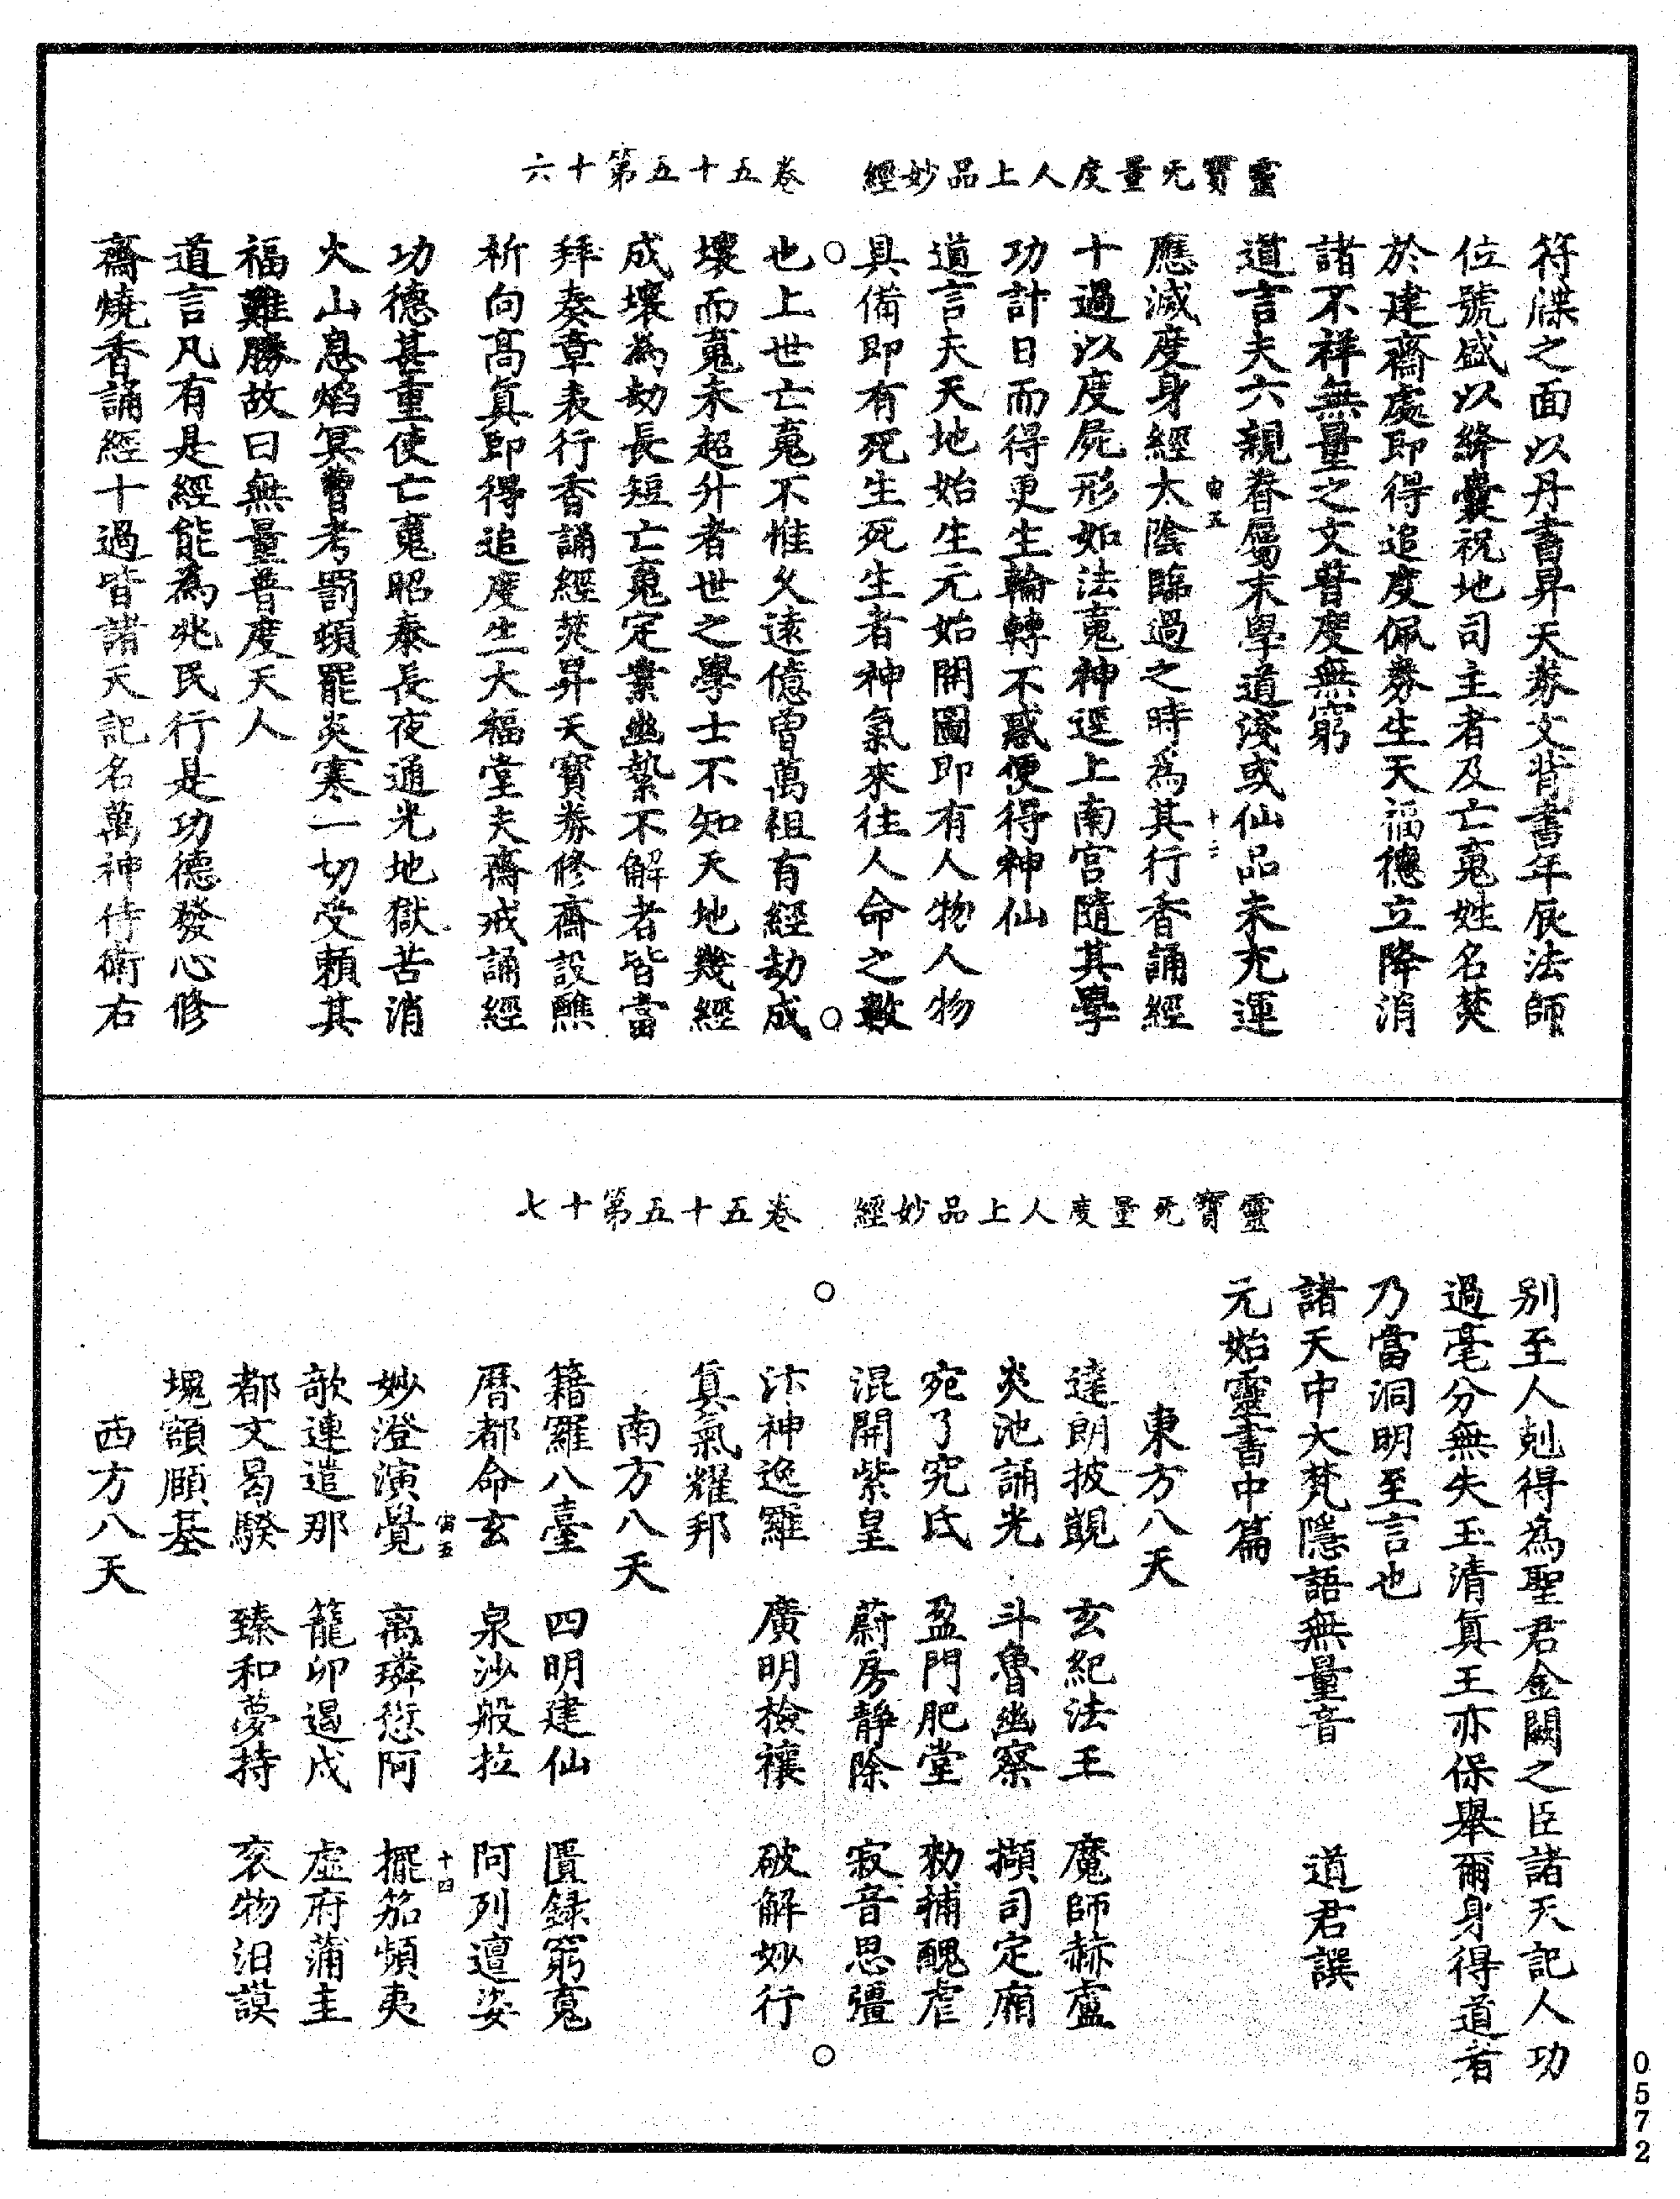 靈寶无量度人上品妙經　卷五十五第十六
符牒之面以丹書昇天券文背書年辰法師
位號盛以絳囊祝地司主者及亡䰟姓名焚
於建齋處即得追度佩券生天福德立降消
諸不祥無量之文普度無窮
道言夫六親眷屬末學道淺或仙品未充運
應滅度身經太陰臨過之時爲其行香誦經
宙五　十三
十過以度屍形如法䰟神逕上南宮隨其學
功計日而得更生輪轉不惑便得神仙
道言夫天地始生元始開圖即有人物人物
具備即有死生死生者神氣來往人命之數
也上世亡䰟不惟久遠億曾萬祖有經劫成
壞而䰟未超升者世之學士不知天地幾經
成壞為劫長短亡䰟定業幽縶不解者皆當
拜奏章表行香誦經焚昇天寶券修齋設醮
祈向髙眞即得追度生大福堂夫齋戒誦經
功德甚重使亡䰟昭泰長夜通光地獄苦消
火山息焰冥曹考罰頓罷炎寒一切受賴其
福難勝故曰無量普度天人
道言凡有是經能為兆民行是功德發心修
齋燒香誦經十過皆諸天記名萬神侍衛右
靈寶无量度人上品妙經　卷五十五第十七
别至人剋得為聖君金闕之臣諸天記人功
過毫分無失玉清真王亦保舉爾身得道者
乃當洞明至言也
諸天中大梵隱語無量音　道君譔
元始靈書中篇
東方八天
達朗披覬　玄紀法王　魔師赫盧
炎池誦光　斗魯幽察　擷司定廂
宛了究氏　盈門肥堂　勑補醜虐
混開紫皇　蔚房靜除　寂音思彊
汴神逸羅　廣明檢禳　破解妙行
真氣耀邦
南方八天
籍羅八臺　四明建仙　匱録窮䰟
曆都命玄　泉沙般拉　阿列邅姿
宙五　十四
妙澄演覺　离璘愆阿　擺笳頻夷
歆連遣那　籠卯遏戍　虚府蒲圭
都文曷騤　臻和夢持　衮物汨謨
塊額願基
西方八天
0572